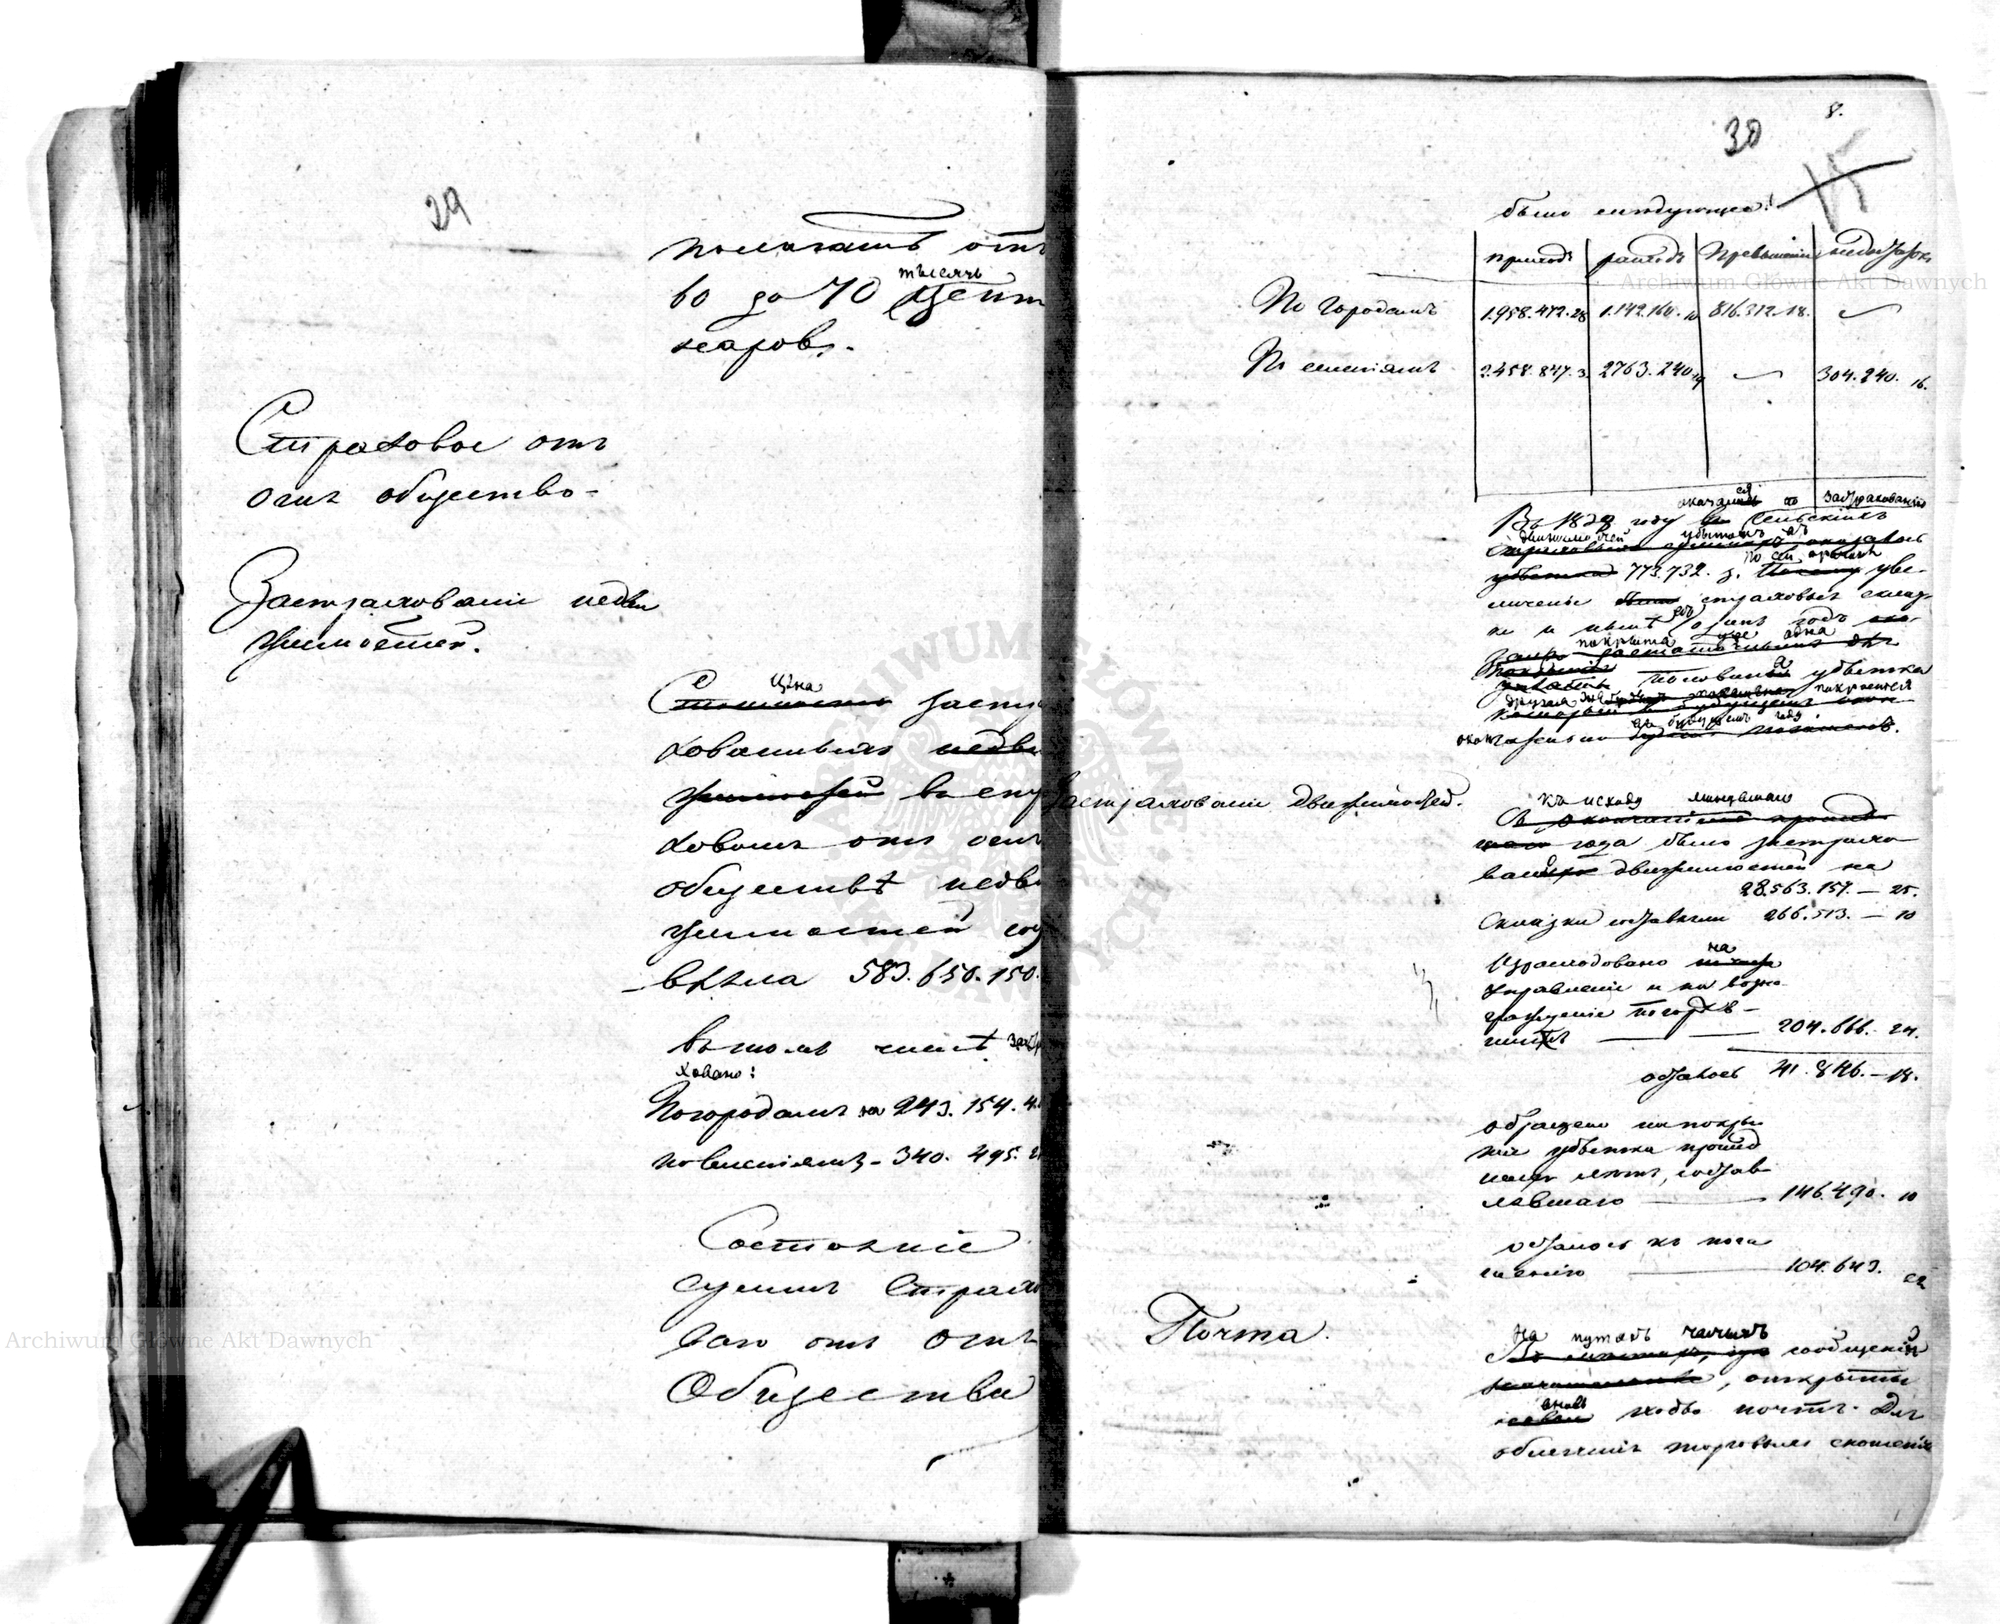 29
полагать отъ
60 до 70 тысячь цент
наровъ.
Страховое отъ
огня общество.
Застрахованіе недви
жимостей.
Цѣна застр
хованныхъ недви
жимостей въ стр
ховомъ отъ огня
обществѣ недви
жимостей сос
вляла 583.650.150.
въ томъ числѣ застр
ховано:
По городамъ на 243.154.4
по селеніямъ - 340.495.
Состояніе
суммъ Страхо
ваго отъ огня
Общества
8.
30
было слѣдующее:
приходъ расходъ Превышеніе недостатокъ
По городамъ 1.958.472.28 1.142.160.10 816.312.18.
По селеніямъ 2.458.847.3 2763.240.19 304.240.16.
оказался по застрахованію
Въ 1829 году сельскихъ
движимостей убытокъ въ
773.732. з. По сей причинѣ уве-
личены страховыя склад-
ки и
покрыта уже одна
половина убытка
другая покроется
въ будущемъ году
окончательно
Застрахованіе движимостей.
Къ исходу минувшаго
года было застрахо-
вано движимостей на
28.563.157. — 25.
Складки составляли 266.513. — 10
Израсходовано на
управленіе и на возна-
гражденіе погорѣв-
шихъ — 204.666. 24.
осталось 41.846. — 18.
обращено на покры
тіе убытка прошед
шихъ лѣтъ, состав-
лявшаго — 146.490. 10
осталось къ пога
шенію — 104.643. 22
Почта.
На путяхъ сообщенія
, открыты
вновь почтъ. Для
облегченія торговыхъ сношеній
Archiwum Główne Akt Dawnych
Archiwum Główne Akt Dawnych
ARCHIWUM GŁÓWNE AKT DAWNYCH